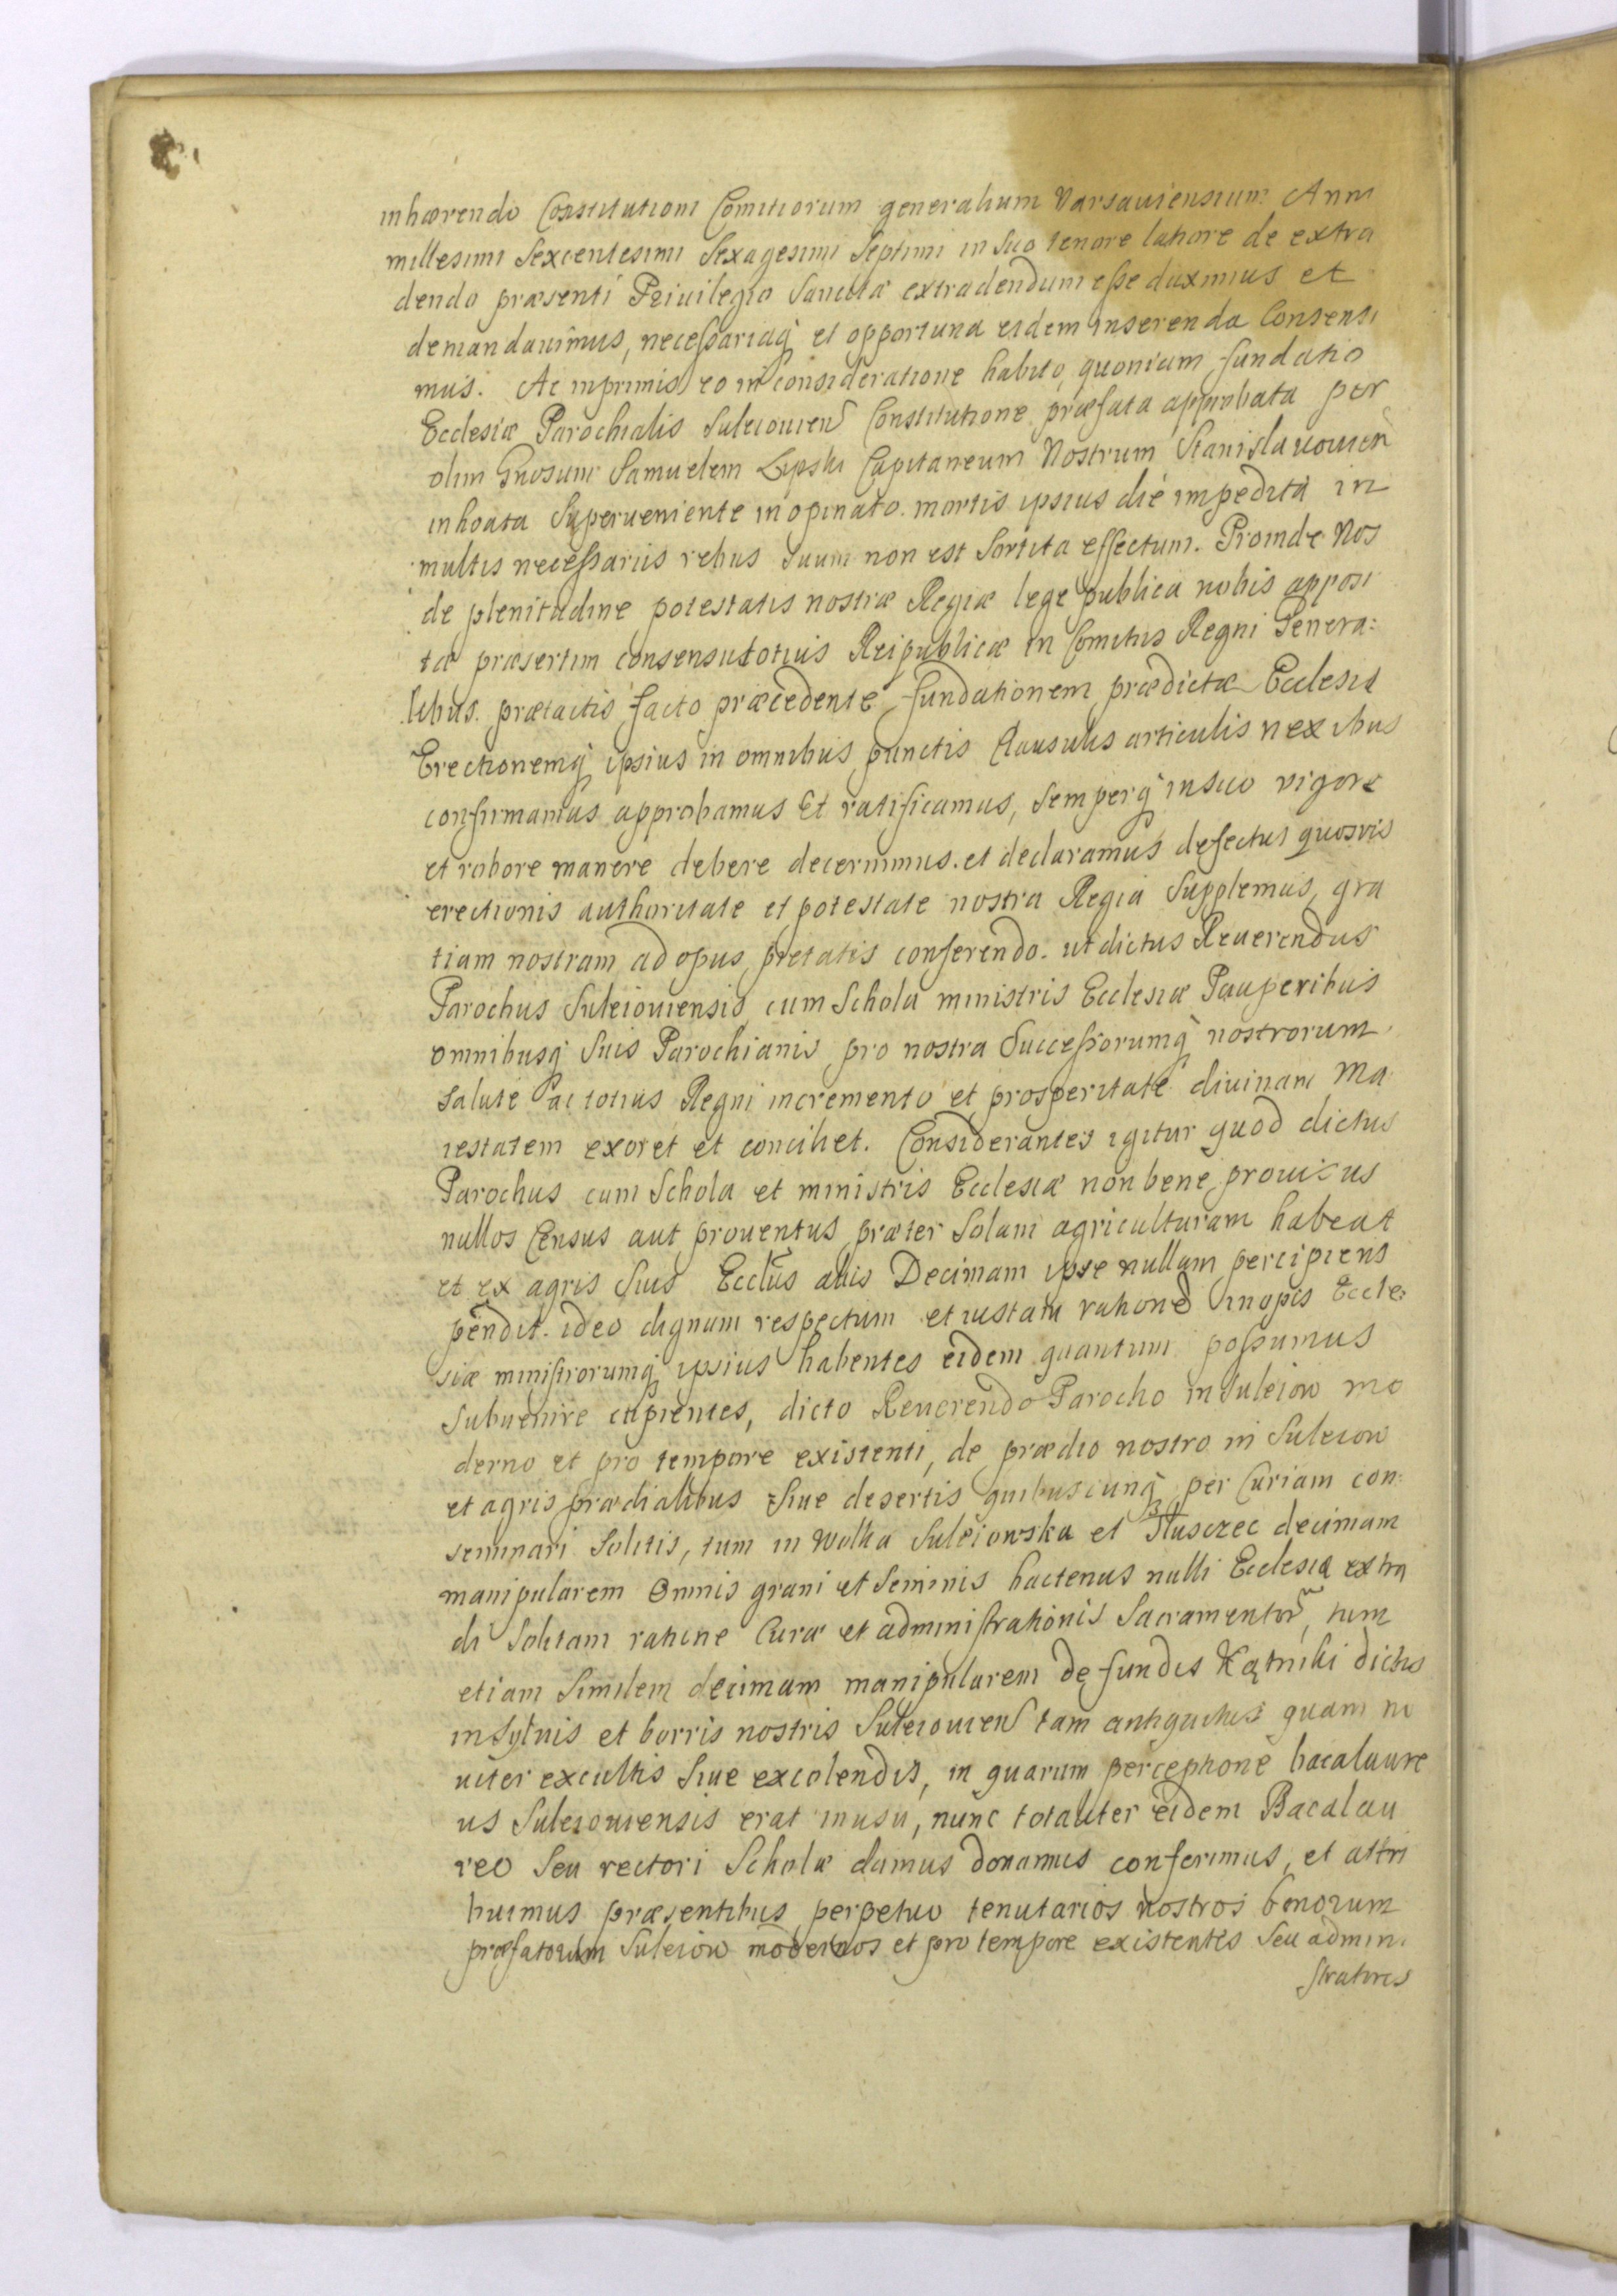 inhærendo Constitutioni Comitiorum generalium Varsauiensium Anni
millesimi Sexcentesimi Sexagesimi Septimi in suo tenore latiore de extra
dendo præsenti Priuilegio sancitæ extradendum esse duximus et
demandauimus, necessariaq; et opportuna eidem inserenda Consensi
mus. Ac inprimis eo in consideratione habito, quoniam fundatio
Ecclesiæ Parochialis Suleiouien Constitutione præfata approbata per
olim Gnosum Samuelem Lipski Capitaneum Nostrum Stanislauouien
inhoata Superueniente inopinato mortis ipsius die impedita in
multis necessariis rebus suum non est Sortita effectum. Proinde Nos
de plenitudine potestatis nostræ Regiæ lege publica nobis apposi
tæ præsertim consensu totius Reipublicæ in Comitiis Regni Genera:
libus prætactis facto præcedente fundationem prædictæ Ecclesiæ
Erectionemq; ipsius in omnibus punctis Clausulis articulis nexibus
confirmamus approbamus Et ratificamus, semperq; in suo vigore
et robore manere debere decernimus et declaramus defectus quosvis
erectionis authoritate et potestate nostra Regia Supplemus, gra
tiam nostram ad opus pietatis conferendo. ut dictus Reuerendus
Parochus Suleiouiensis cum Schola ministris Ecclesiæ Pauperibus
omnibusq; Suis Parochianis pro nostra Successorumq; nostrorum
salute ac totius Regni incremento et prosperitate diuinam Ma
iestatem exoret et conciliet. Considerantes igitur quod dictus
Parochus cum Schola et ministris Ecclesiæ non bene prouisus
nullos Census aut prouentus præter Solam agriculturam habeat
et ex agris Suis Ecclis aliis Decimam ipse nullam percipiens
pendit. ideo dignum respectum et iustam rationem inopis Eccle:
siæ ministrorumq; ipsius habentes eidem quantum possumus
Subuenire cupientes, dicto Reuerendo Parocho in Suleiow mo
derno et pro tempore existenti, de prædio nostro in Suleiow
et agris prædialibus siue desertis quibuscunq; per Curiam con:
seminari Solitis, tum in Wolka Suleiowska et Tlusczec decimam
manipularem Omnis grani et Seminis hactenus nulli Ecclesiæ extra
di Solitam ratione Curæ et administrationis Sacramentor, tum
etiam Similem decimam manipularem de fundis Kątniki dictis
in Syluis et borris nostris Suleiouien tam antiquitus quam no
uiter excultis Siue excolendis, in quarum perceptione bacalaure
us Suleiouiensis erat in usu, nunc totaliter eidem Bacalau
reo Seu rectori Scholæ damus donamus conferimus, et attri
buimus præsentibus perpetuo tenutarios nostros bonorum
præfatorum Suleiow modernos et pro tempore existentes Seu admini
stratores